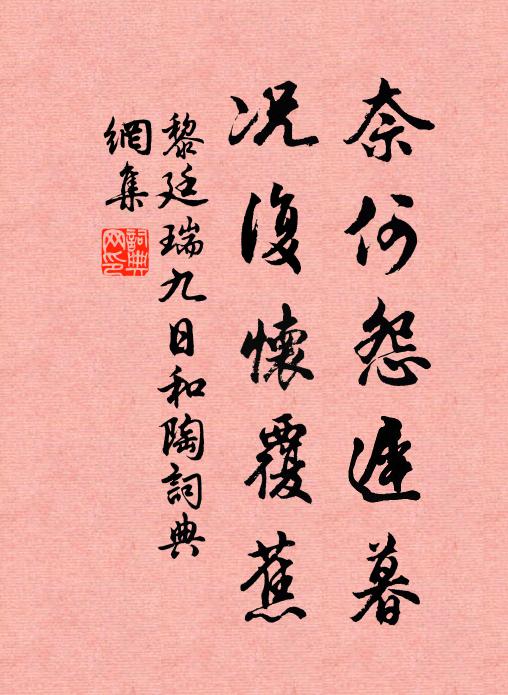 奈何怨遲暮
況復懷覆蕉
黎廷瑞九日和陶詞典
網集
詞典
网印